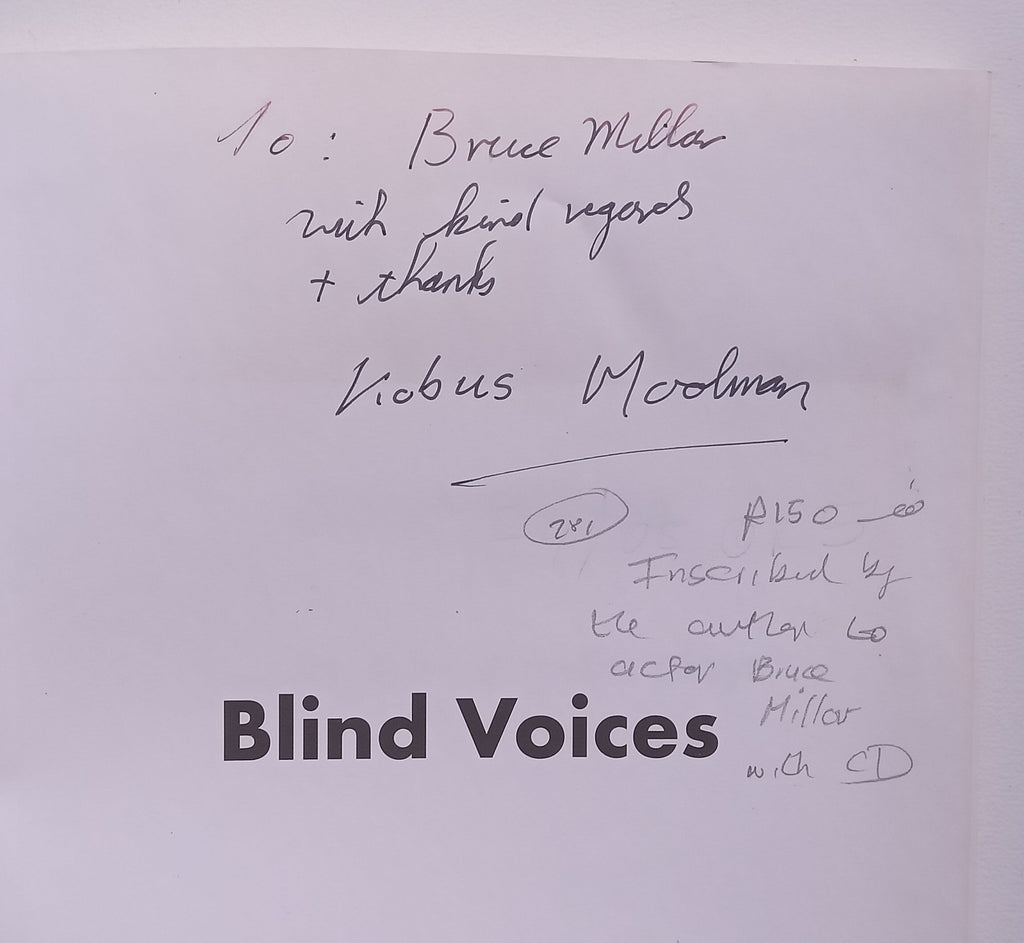 To: Bruce Millar
with kind regards
+ thanks
Kobus Moolman
281 R150 - 00
Inscribed by
the author to
actor Bruce
Millar
Blind Voices
with CD